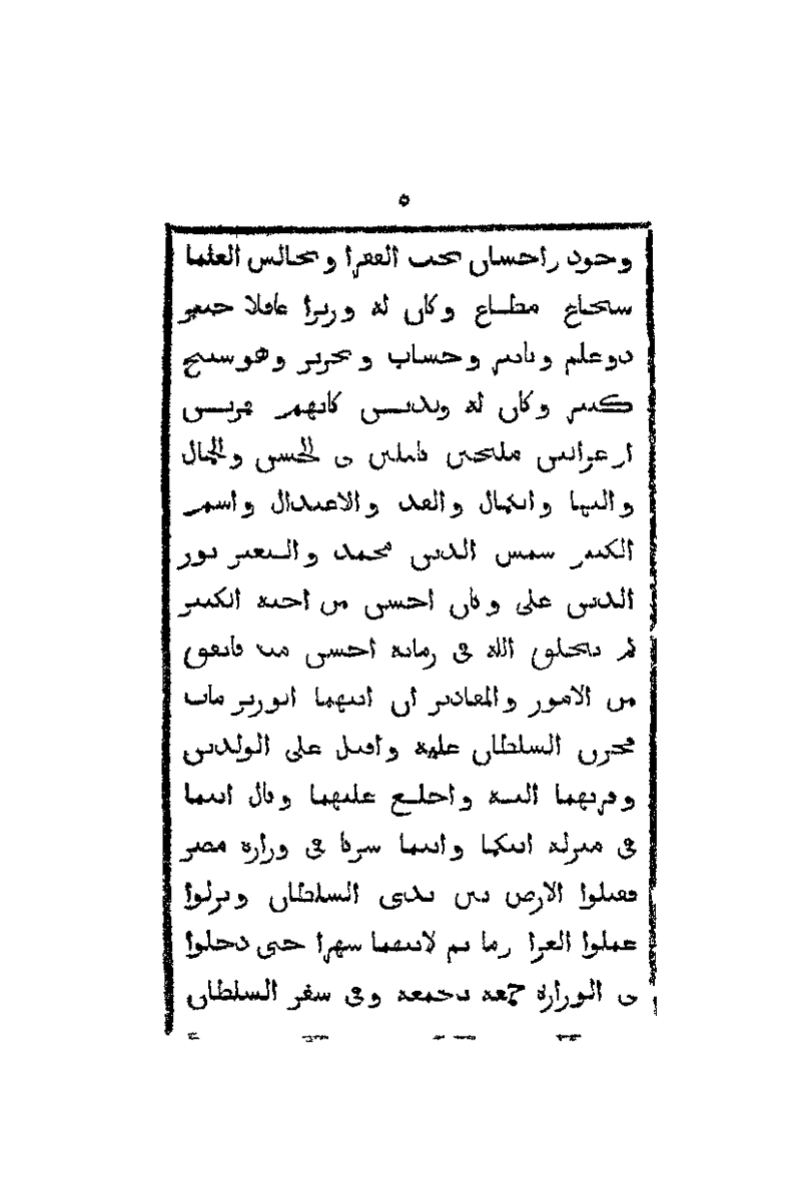 ٥
وجود واحسان يحب الفقرا ويجالس العلما
شجاع مطاع وكان له وزيرا عاقلا خبير
ذو علم وتاثير وحساب وتحرير وهو شيخ
كبير وكان له ولدين كانهم قمرين
او غزالين مليحين كاملين في الحسن والجمال
والبها والكمال والقد والاعتدال واسم
الكبير شمس الدين محمد والصغير نور
الدين علي وكان احسن من اخيه الكبير
لم يخلق الله في زمانه احسن منه فاتفق
من الامور والمقادير ان ابيهما الوزير مات
فحزن السلطان عليه واقبل على الولدين
وقربهما اليه واخلع عليهما وقال انتما
في منزلة ابيكما وانتما شركا في وزارة مصر
فقبلوا الارض بين يدي السلطان ونزلوا
عملوا العزا وما تم لابيهما شهرا حتى دخلوا
في الوزارة جمعه بجمعه وفي سفر السلطان